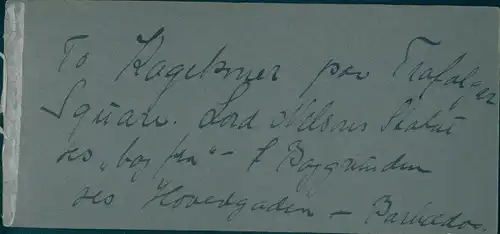 To Kagekoner paa Trafalgar
Square. Lord Nelsons Statue
ses „bag fra“ – I Baggrunden
ses Hovedgaden – Barbados.